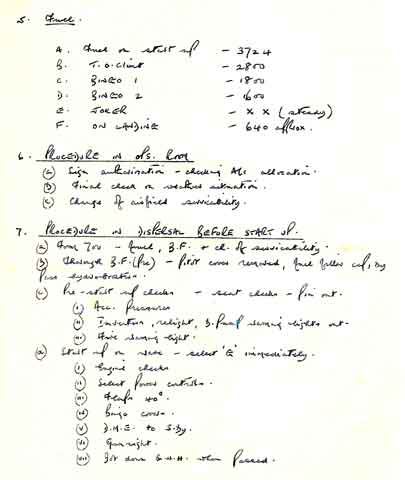 5. Fuel.
A. Fuel on start up - 3724
B. T.O. Climb - 2800
C. BINGO 1 - 1800
D. BINGO 2 - 1600
E. JOKER - X X (steady)
F. ON LANDING - 640 approx.
6. PROCEDURE IN OPS. ROOM
(a) Sign authorisation - checking A/c allocation.
(b) Final check on weather situation.
(c) Change of airfield serviceability.
7. PROCEDURE IN DISPERSAL BEFORE START UP.
(a) Form 700 - fuel, B.F. + ch. of serviceability.
(b) Through B.F. (Pre) - Pitot cover removed, fuel filler cap,
(c) Pre-start up checks - seat checks - pin out.
i Acc. pressures
ii Inverters, relight, warning lights out.
iii Fire warning light.
(d) Start up on - select 'E' immediately.
i Engine checks
ii Select Power controls.
iii Flaps 40°.
iv Bingo
v D.M.E. to S.by.
vi Gunsight.
vii down when passed.